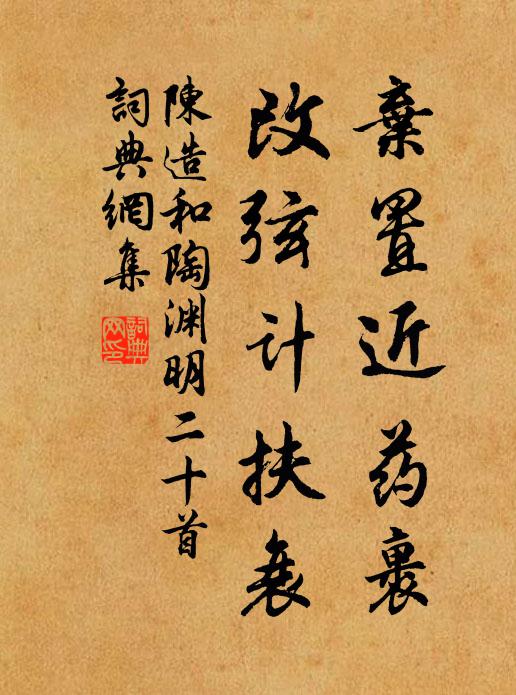 棄置近药裹
改弦计扶衰
陳造和陶渊明二十首
詞典網集
詞典
网印